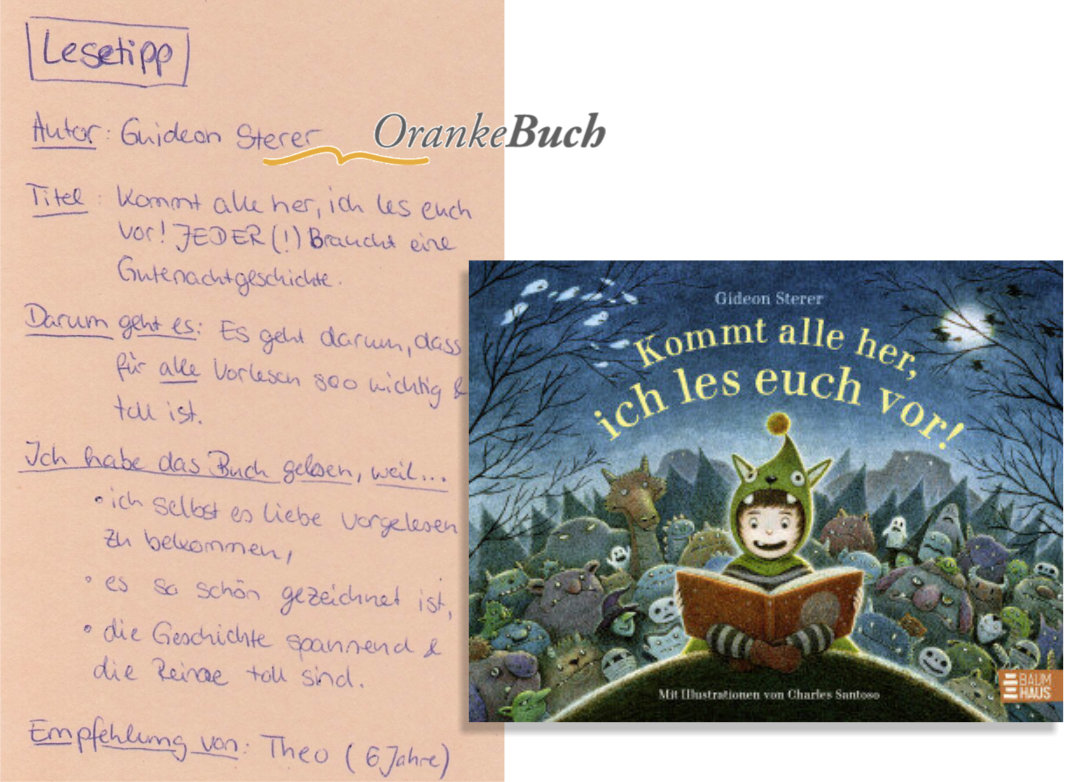 Lesetipp
Autor: Guideon Sterer
OrankeBuch
Titel: Kommt alle her, ich les euch
vor! JEDER (!) Braucht eine
Gutenachtgeschichte.
Darum geht es: Es geht darum, dass
für alle Vorlesen soo wichtig &
toll ist.
Ich habe das Buch gelesen, weil...
• ich selbst es liebe vorgelesen
zu bekommen,
• es so schön gezeichnet ist,
• die Geschichte spannend &
die Reime toll sind.
Empfehlung von: Theo (6 Jahre)
Gideon Sterer
Kommt alle her,
ich les euch vor!
Mit Illustrationen von Charles Santoso
BAUM
HAUS